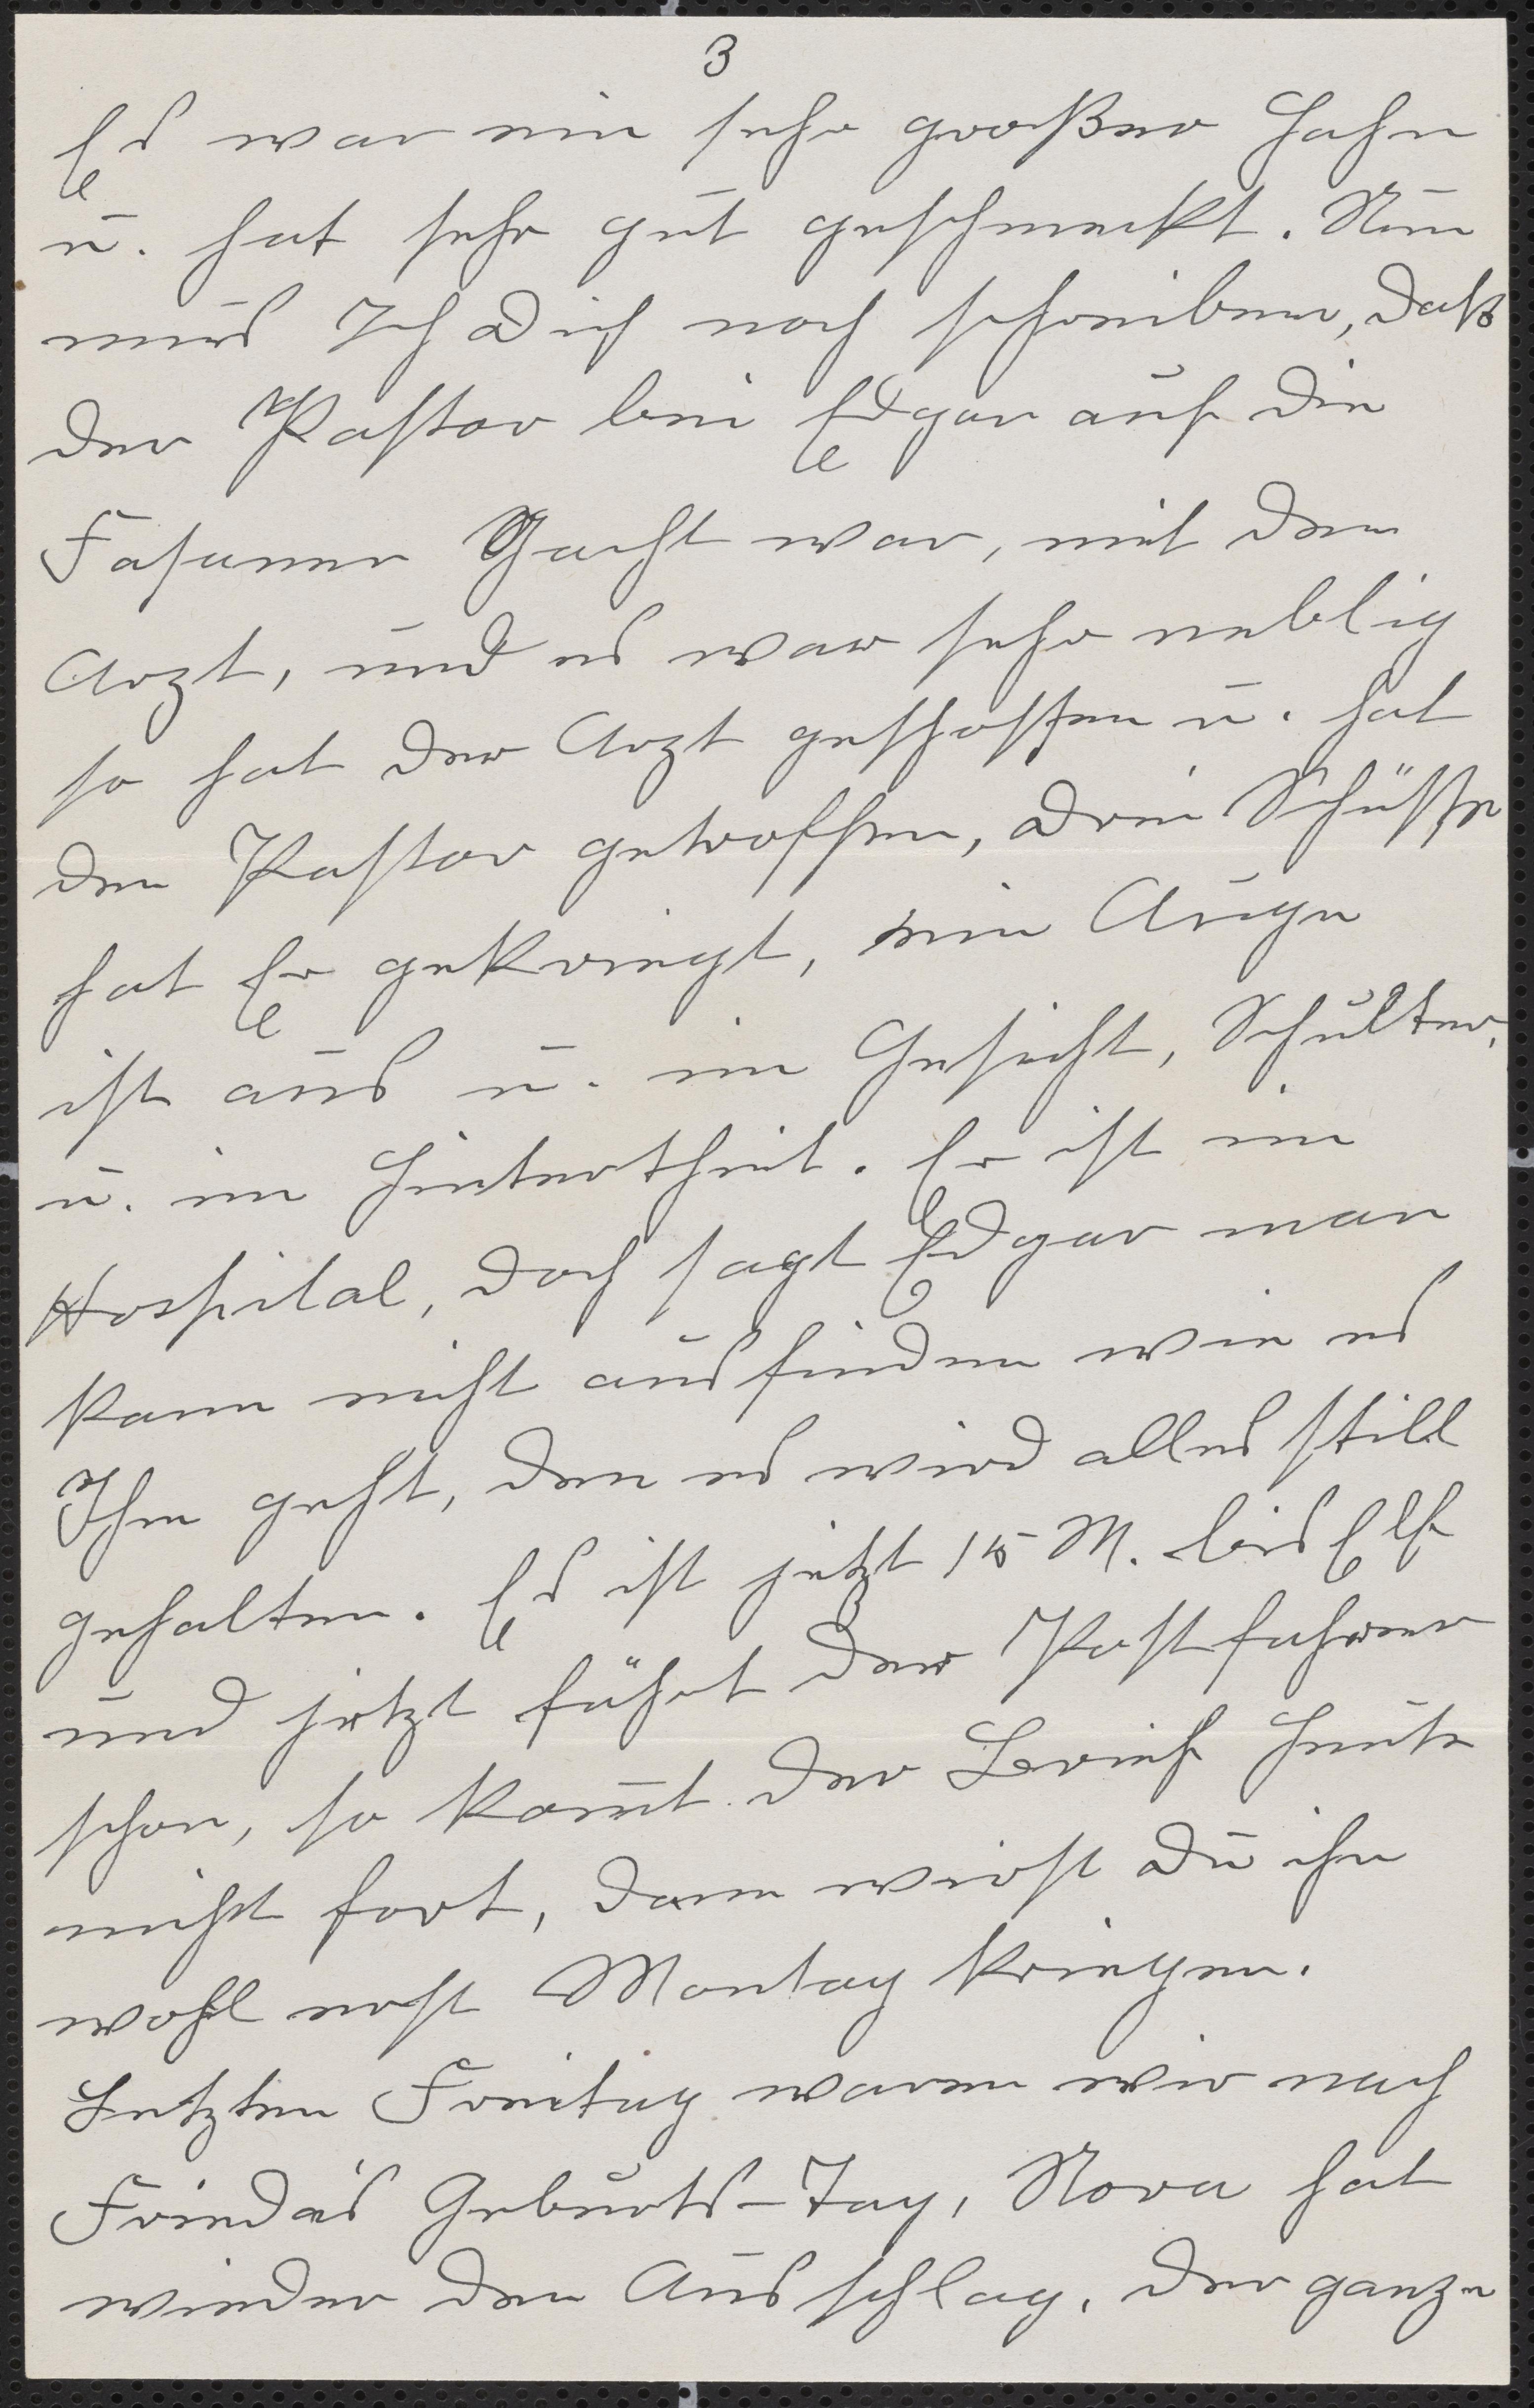 3
Es war ein sehr großer Hahn
u. hat sehr gut geschmeckt. Nun
mus Ich Dich noch schreiben, daß
der Pastor bei Edgar auf die
Fasanen Jacht war, mit dem
Arzt, und es war sehr neblig
so hat der Arzt geschossen u. hat
den Pastor getroffen, drei Schüsse
hat Er gekriegt, ein Auge
ist aus u. im Gesicht, Schulter,
u. im Hintertheil. Er ist im
Hospital, doch sagt Edgar man
kann nicht ausfinden wie es
Ihm geht, den es wird alles still
gehalten. Es ist jetzt 15 M. bis Elf
und jetzt fährt der Postfahrer
schon, so kom̅t der Brief heute
nicht fort, dann wirst Du ihn
wohl erst Montag kriegen.
Letzten Freitag waren wir nach
Frieda's Geburts-Tag, Nora hat
wieder den Ausschlag, der ganze